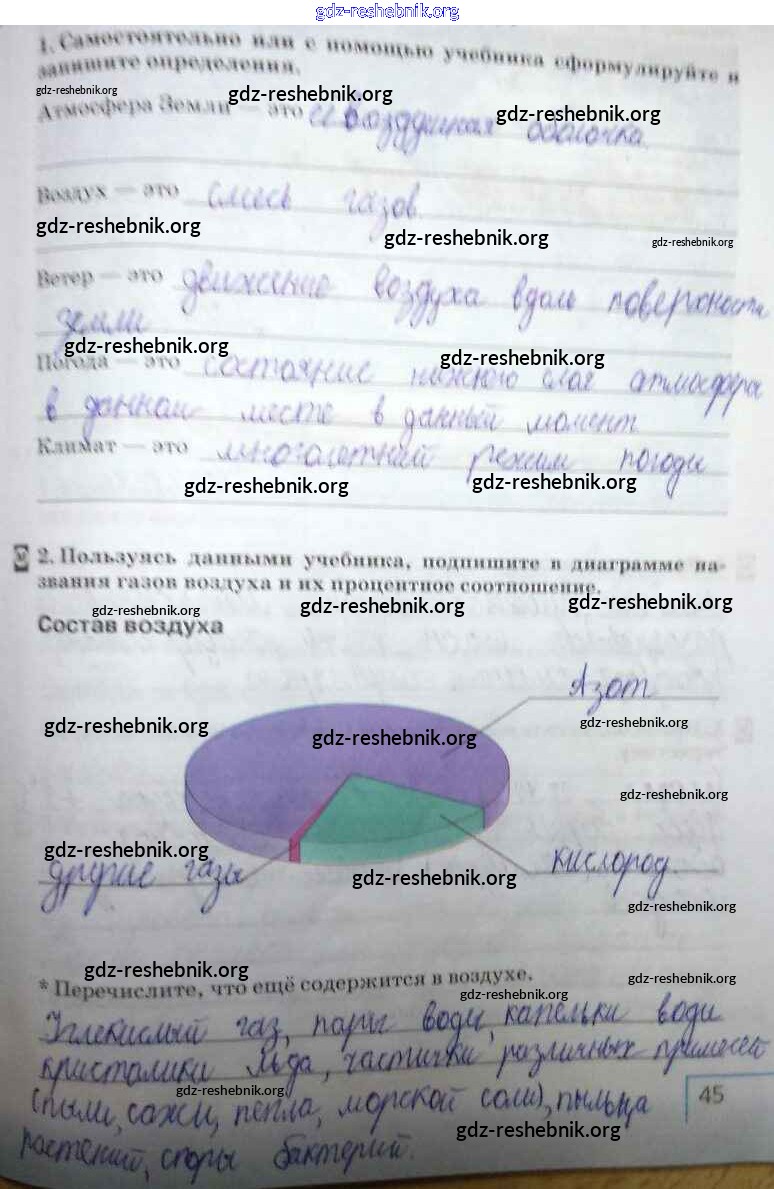 gdz-reshebnik.org
1. Самостоятельно или с помощью учебника сформулируйте и
запишите определения.
gdz-reshebnik.org
gdz-reshebnik.org
gdz-reshebnik.org
Атмосфера Земли — это воздушная оболочка.
Воздух — это смесь газов
gdz-reshebnik.org
gdz-reshebnik.org
gdz-reshebnik.org
Ветер — это движение воздуха вдоль поверхности
земли
gdz-reshebnik.org
gdz-reshebnik.org
Погода — это состояние нижнего слоя атмосферы
в данном месте в данный момент
Климат — это многолетний режим погоды
gdz-reshebnik.org
gdz-reshebnik.org
2. Пользуясь данными учебника, подпишите в диаграмме на-
звания газов воздуха и их процентное соотношение.
gdz-reshebnik.org
gdz-reshebnik.org
gdz-reshebnik.org
Состав воздуха
Азот
gdz-reshebnik.org
gdz-reshebnik.org
gdz-reshebnik.org
gdz-reshebnik.org
gdz-reshebnik.org
другие газы
кислород.
gdz-reshebnik.org
gdz-reshebnik.org
gdz-reshebnik.org
* Перечислите, что ещё содержится в воздухе.
gdz-reshebnik.org
gdz-reshebnik.org
Углекислый газ, пары воды, капельки воды
кристалики льда, частички различных примесей
gdz-reshebnik.org
(пыли, сажи, пепла, морской соли), пыльца
45
gdz-reshebnik.org
растений, споры бактерий.